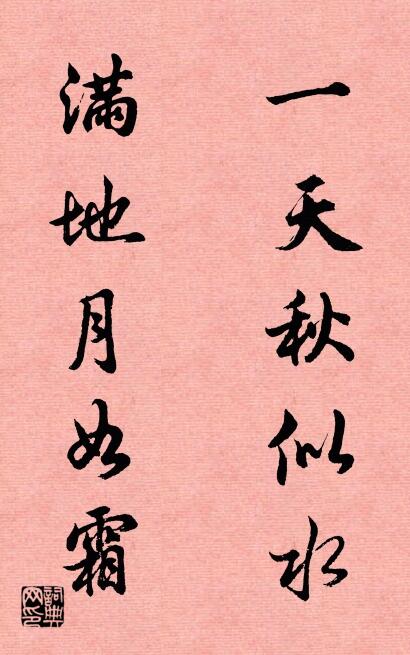 一天秋似水
满地月如霜